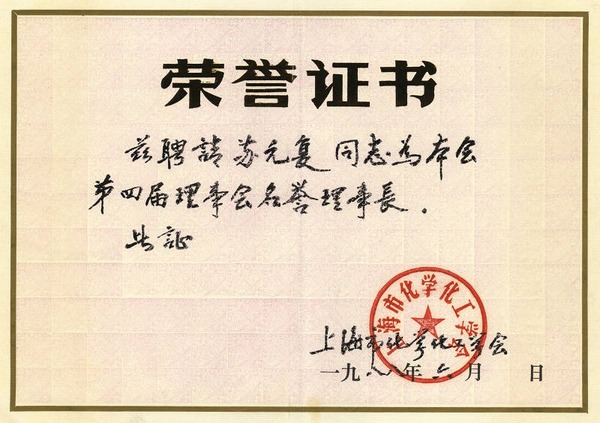 荣誉证书
兹聘請苏元复同志为本会
第四届理事会名誉理事長.
此証
上海市化学化工学会
上海市化学化工学会
一九八八年六月 日